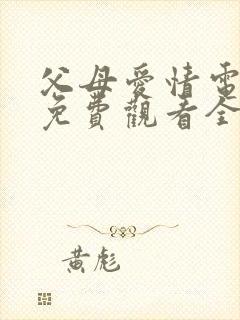 父母愛情電
免費觀看全
黃彪